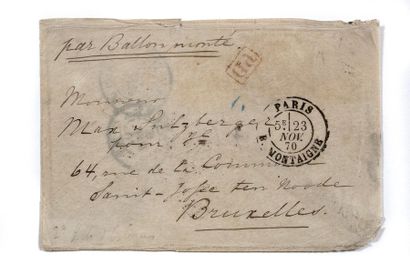 par Ballon monté.
PD
Monsieur
Max Sulzberger
pour
64, rue de la Commune
Saint-Josse ten Noode
Bruxelles.
PARIS
5E 23
NOV.
70
R. MONTAIGNE